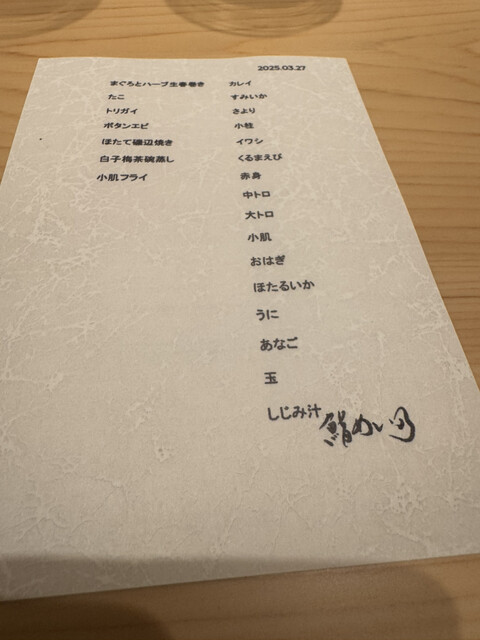 2025.03.27
まぐろとハーブ生春巻き
たこ
トリガイ
ボタンエビ
ほたて磯辺焼き
白子梅茶碗蒸し
小肌フライ
カレイ
すみいか
さより
小柱
イワシ
くるまえび
赤身
中トロ
大トロ
小肌
おはぎ
ほたるいか
うに
あなご
玉
しじみ汁
鮨めい乃